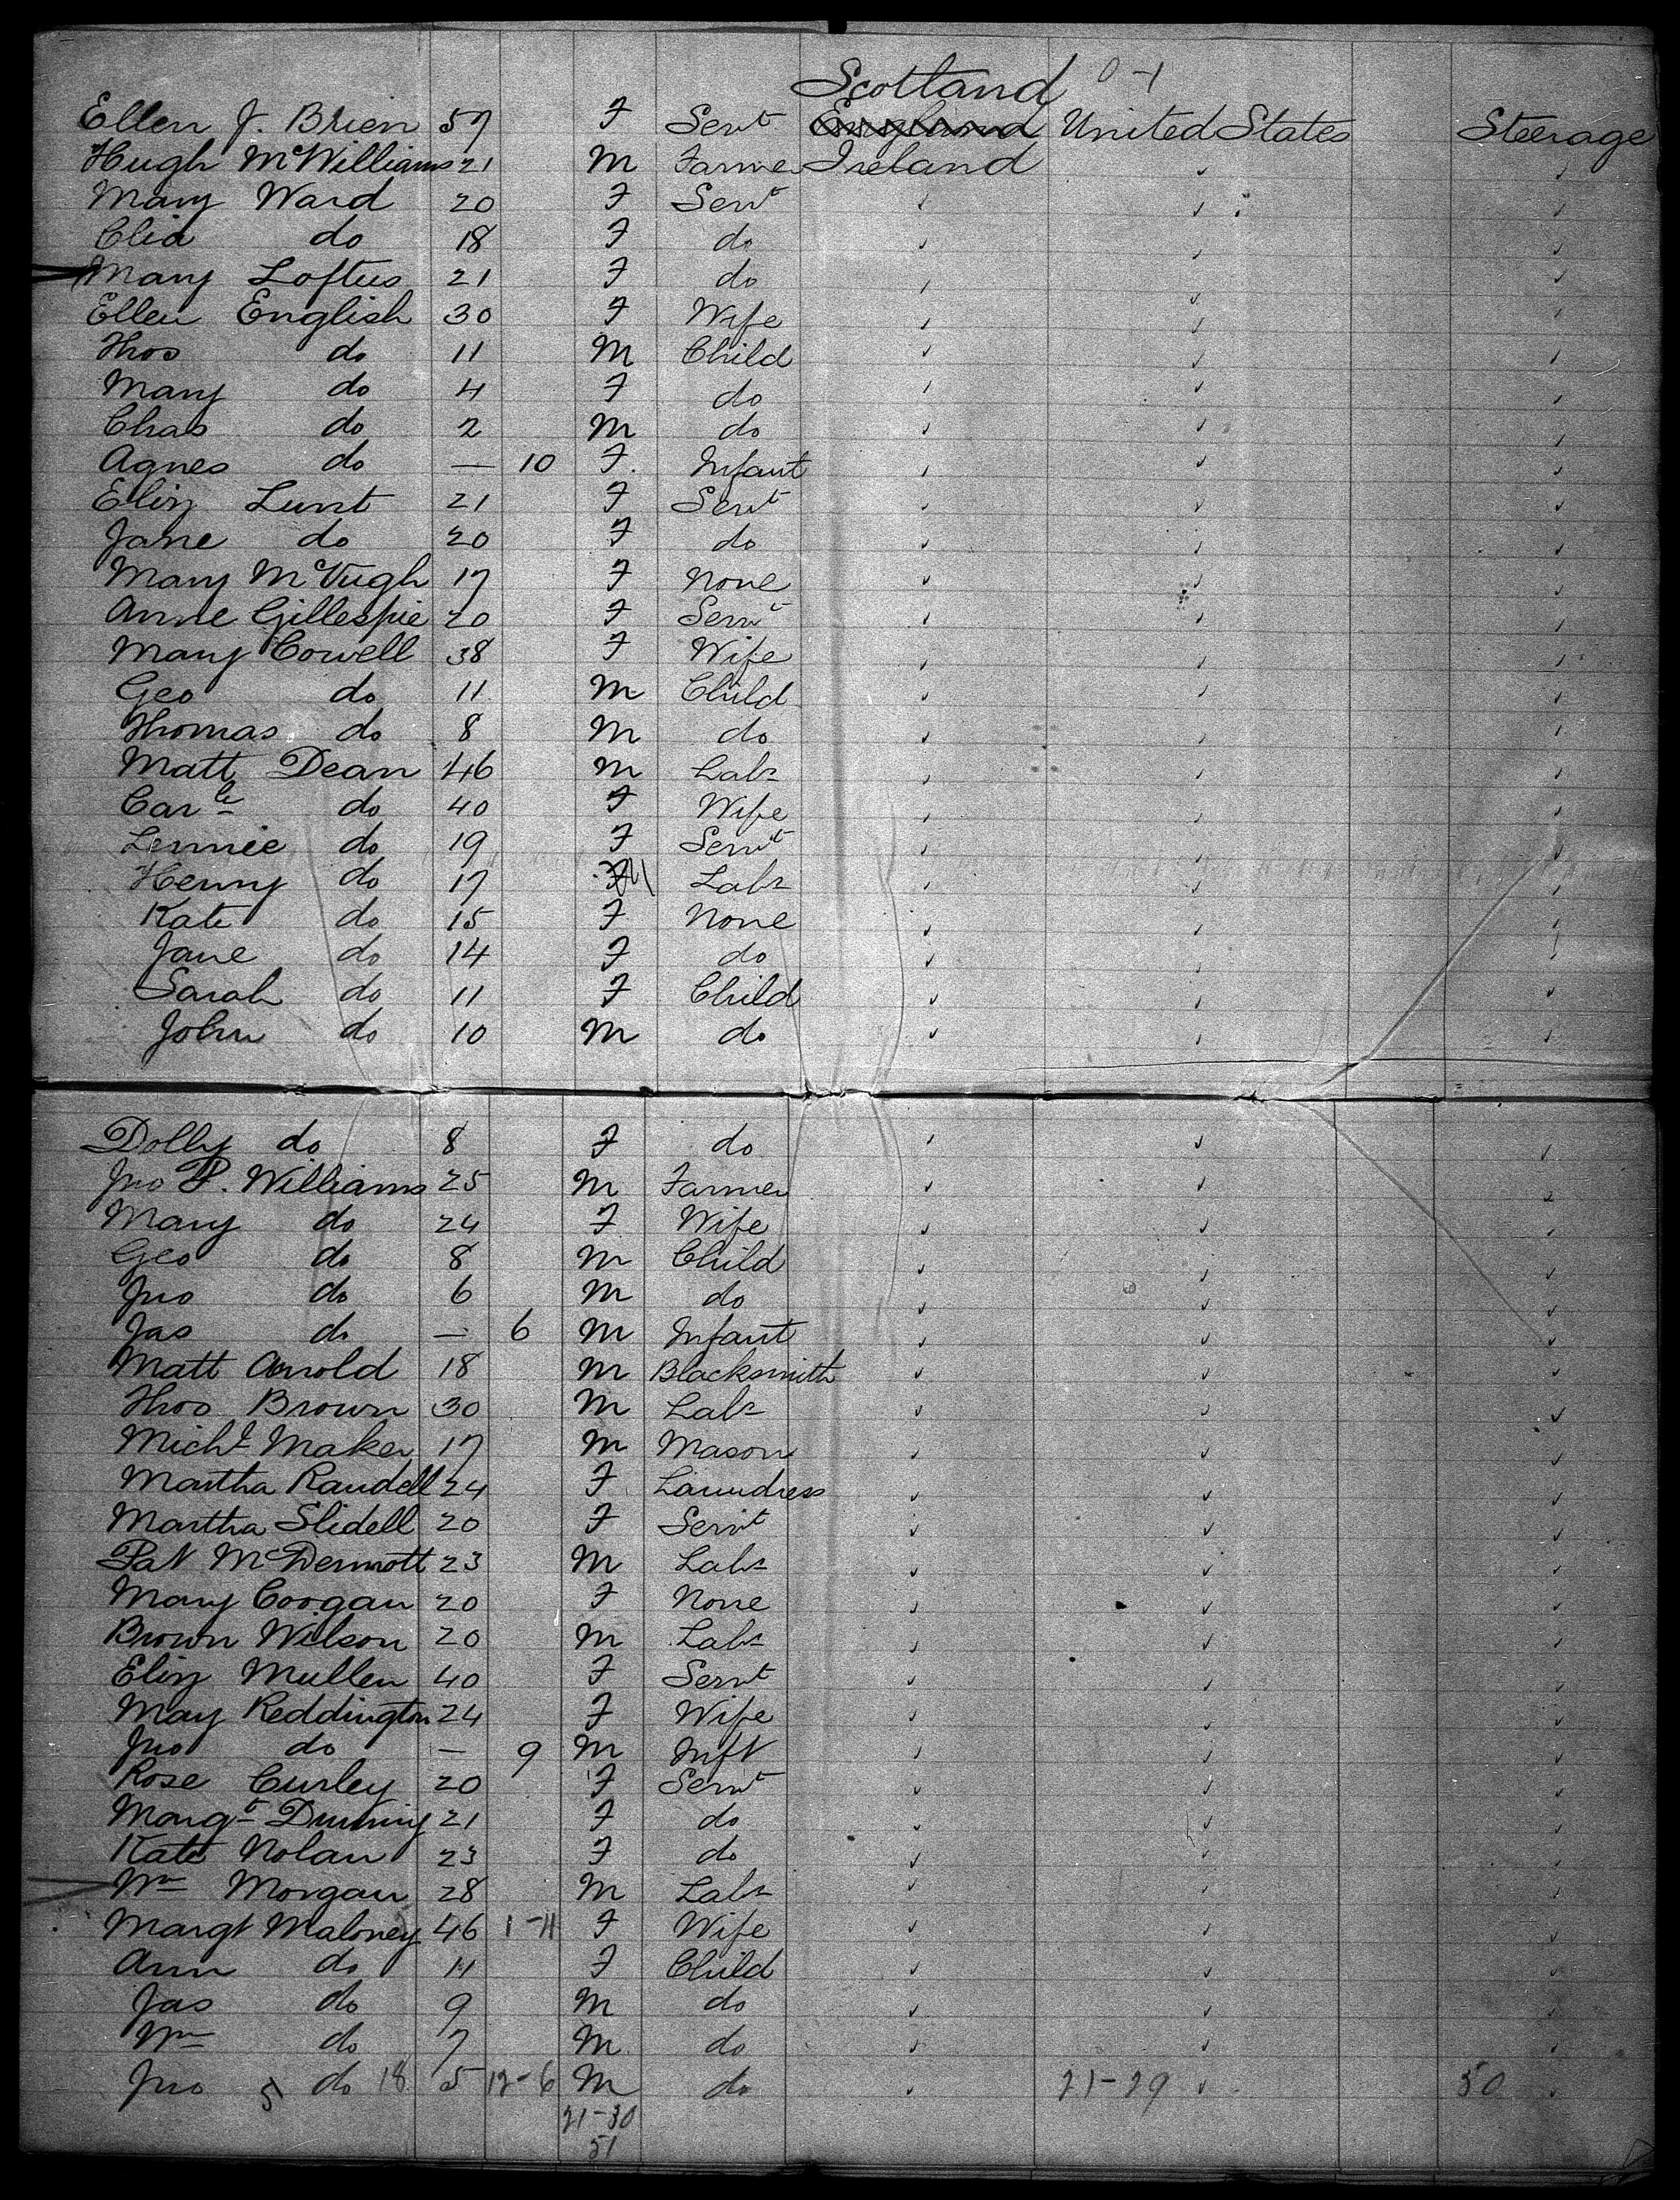 Scotland 0-1
Ellen J. Brien 57 F Servt England United States Steerage
Hugh McWilliams 21 M Farmer Ireland ✓ ✓
Mary Ward 20 F Servt ✓ ✓ ✓
Celia do 18 F do ✓ ✓ ✓
Mary Loftus 21 F do ✓ ✓ ✓
Ellen English 30 F Wife ✓ ✓ ✓
Thos do 11 M Child ✓ ✓ ✓
Mary do 4 F do ✓ ✓ ✓
Chas do 2 M do ✓ ✓ ✓
Agnes do — 10 F. Infant ✓ ✓ ✓
Eliz Lunt 21 F Servt ✓ ✓ ✓
Jane do 20 F do ✓ ✓ ✓
Mary McVugh 17 F None ✓ ✓ ✓
Anne Gillespie 20 F Servt ✓ ✓ ✓
Mary Cowell 38 F Wife ✓ ✓ ✓
Geo do 11 M Child ✓ ✓ ✓
Thomas do 8 M do ✓ ✓ ✓
Matt Dean 46 M Labr ✓ ✓ ✓
Carle do 40 F Wife ✓ ✓ ✓
Lennie do 19 F Servt ✓ ✓ ✓
Henry do 17 M Labr ✓ ✓ ✓
Kate do 15 F None ✓ ✓ ✓
Jane do 14 F do ✓ ✓ ✓
Sarah do 11 F Child ✓ ✓ ✓
John do 10 M do ✓ ✓ ✓
Dolly do 8 F do ✓ ✓ ✓
Jno P. Williams 25 M Farmer ✓ ✓ ✓
Mary do 24 F Wife ✓ ✓ ✓
Geo do 8 M Child ✓ ✓ ✓
Jno do 6 M do ✓ ✓ ✓
Jas do — 6 M Infant ✓ ✓ ✓
Matt Arnold 18 M Blacksmith ✓ ✓ ✓
Thos Brown 30 M Labr ✓ ✓ ✓
Michl Maker 17 M Mason ✓ ✓ ✓
Martha Randell 24 F Laundress ✓ ✓ ✓
Martha Slidell 20 F Servt ✓ ✓ ✓
Pat McDermott 23 M Labr ✓ ✓ ✓
Mary Coogan 20 F None ✓ ✓ ✓
Brown Wilson 20 M Labr ✓ ✓ ✓
Eliz Mullen 40 F Servt ✓ ✓ ✓
May Reddington 24 F Wife ✓ ✓ ✓
Jno do — 9 M Inft ✓ ✓ ✓
Rose Curley 20 F Servt ✓ ✓ ✓
Margt 21 F do ✓ ✓ ✓
Kate Nolan 23 F do ✓ ✓ ✓
Wm Morgan 28 M Labr ✓ ✓ ✓
Margt Maloney 46 1-11 F Wife ✓ ✓ ✓
Ann do 11 F Child ✓ ✓ ✓
Jas do 9 M do ✓ ✓ ✓
Wm do 7 M do ✓ ✓ ✓
Jno 5 do 18 5 12-6 M do ✓ 21-29 ✓ 50 ✓
21-30
51